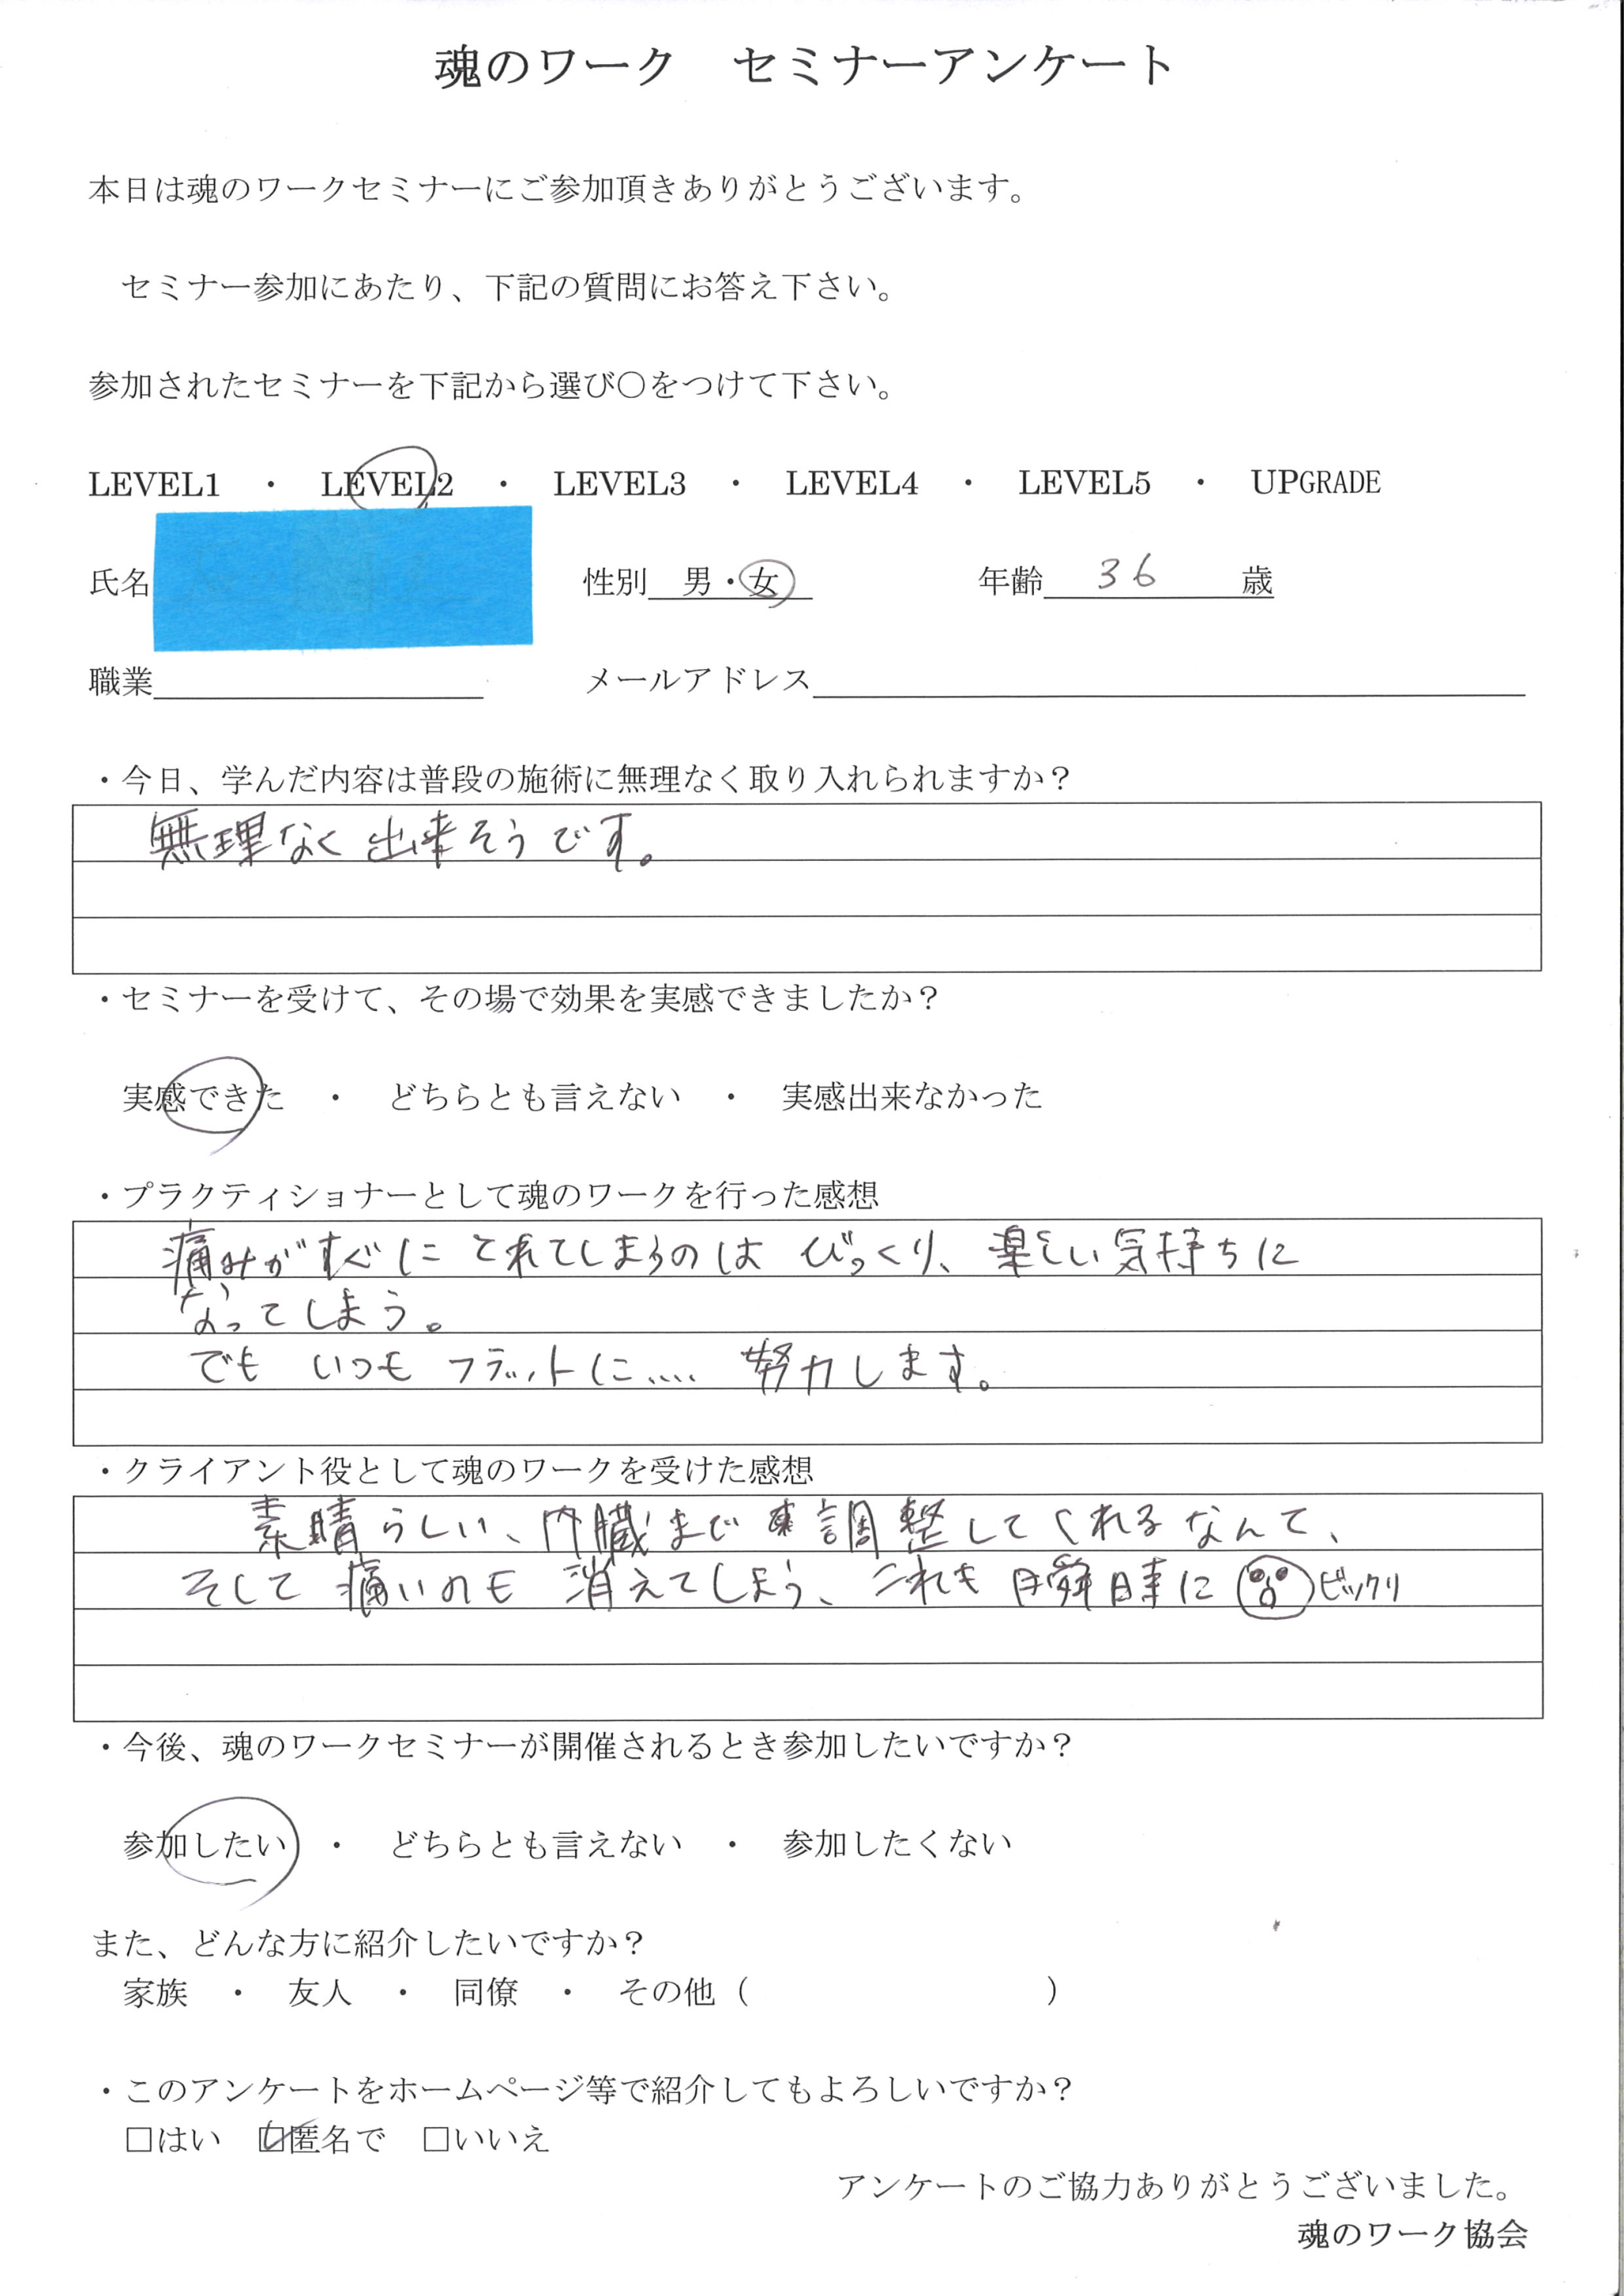 魂のワーク　セミナーアンケート
本日は魂のワークセミナーにご参加頂きありがとうございます。
セミナー参加にあたり、下記の質問にお答え下さい。
参加されたセミナーを下記から選び〇をつけて下さい。
LEVEL1　・　LEVEL2　・　LEVEL3　・　LEVEL4　・　LEVEL5　・　UPGRADE
氏名　性別　男・女　年齢　36　歳
職業　メールアドレス
・今日、学んだ内容は普段の施術に無理なく取り入れられますか？
無理なく出来そうです。
・セミナーを受けて、その場で効果を実感できましたか？
実感できた　・　どちらとも言えない　・　実感出来なかった
・プラクティショナーとして魂のワークを行った感想
痛みがすぐにとれてしまうのはびっくり、楽しい気持ちに
なってしまう。
でも いつも フラットに.... 努力します。
・クライアント役として魂のワークを受けた感想
素晴らしい、内臓まで調整してくれるなんて、
そして痛いのも 消えてしまう、これも瞬時に ビックリ
・今後、魂のワークセミナーが開催されるとき参加したいですか？
参加したい　・　どちらとも言えない　・　参加したくない
また、どんな方に紹介したいですか？
家族　・　友人　・　同僚　・　その他（　　　　　　　　　）
・このアンケートをホームページ等で紹介してもよろしいですか？
□はい　☑匿名で　□いいえ
アンケートのご協力ありがとうございました。
魂のワーク協会